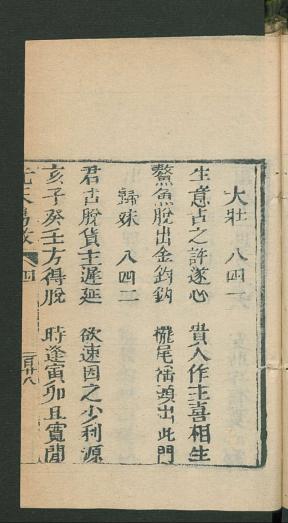 大壯 八四一
生意占之許遂心 貴人作主喜相生
鰲魚脫出金鈎鈎 擺尾搖頭出此門
歸妹 八四二
君占脫貨主遲延 欲速因之少利源
亥子癸壬方得脫 時逢寅卯且賣閒